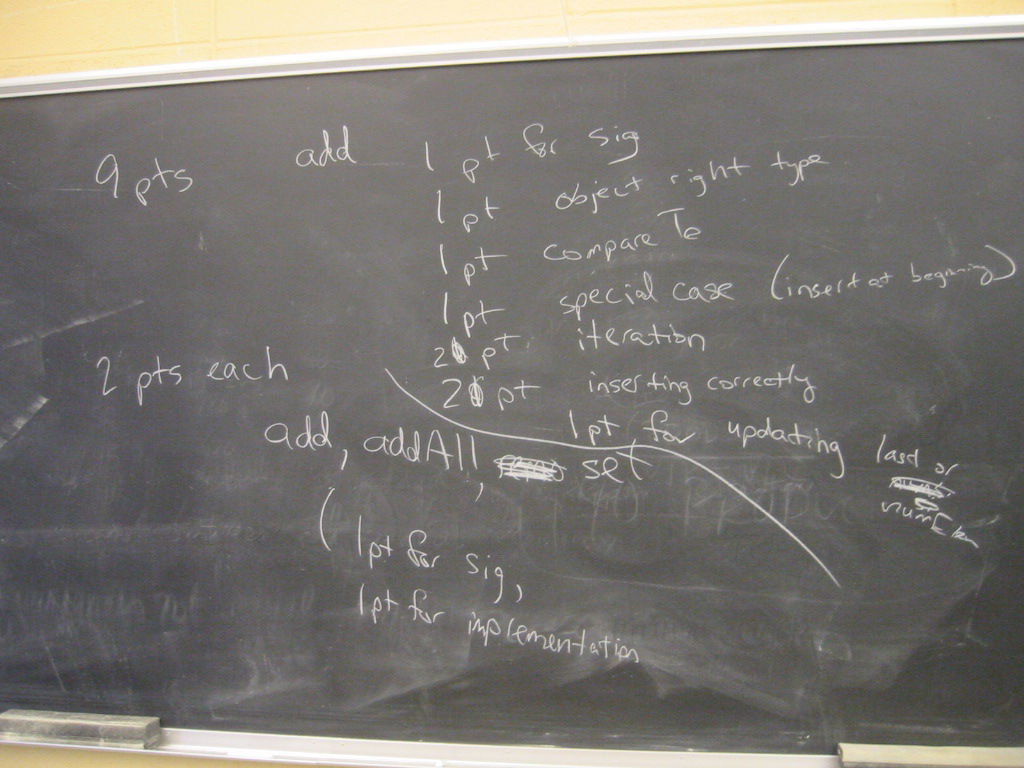 9 pts add 1 pt for sig
1 pt object right type
1 pt compare To
1 pt special case (insert at beginning)
2 pt iteration
2 pt inserting correctly
1 pt for updating last or numElem
2 pts each
add, addAll, set
(1 pt for sig,
1 pt for implementation